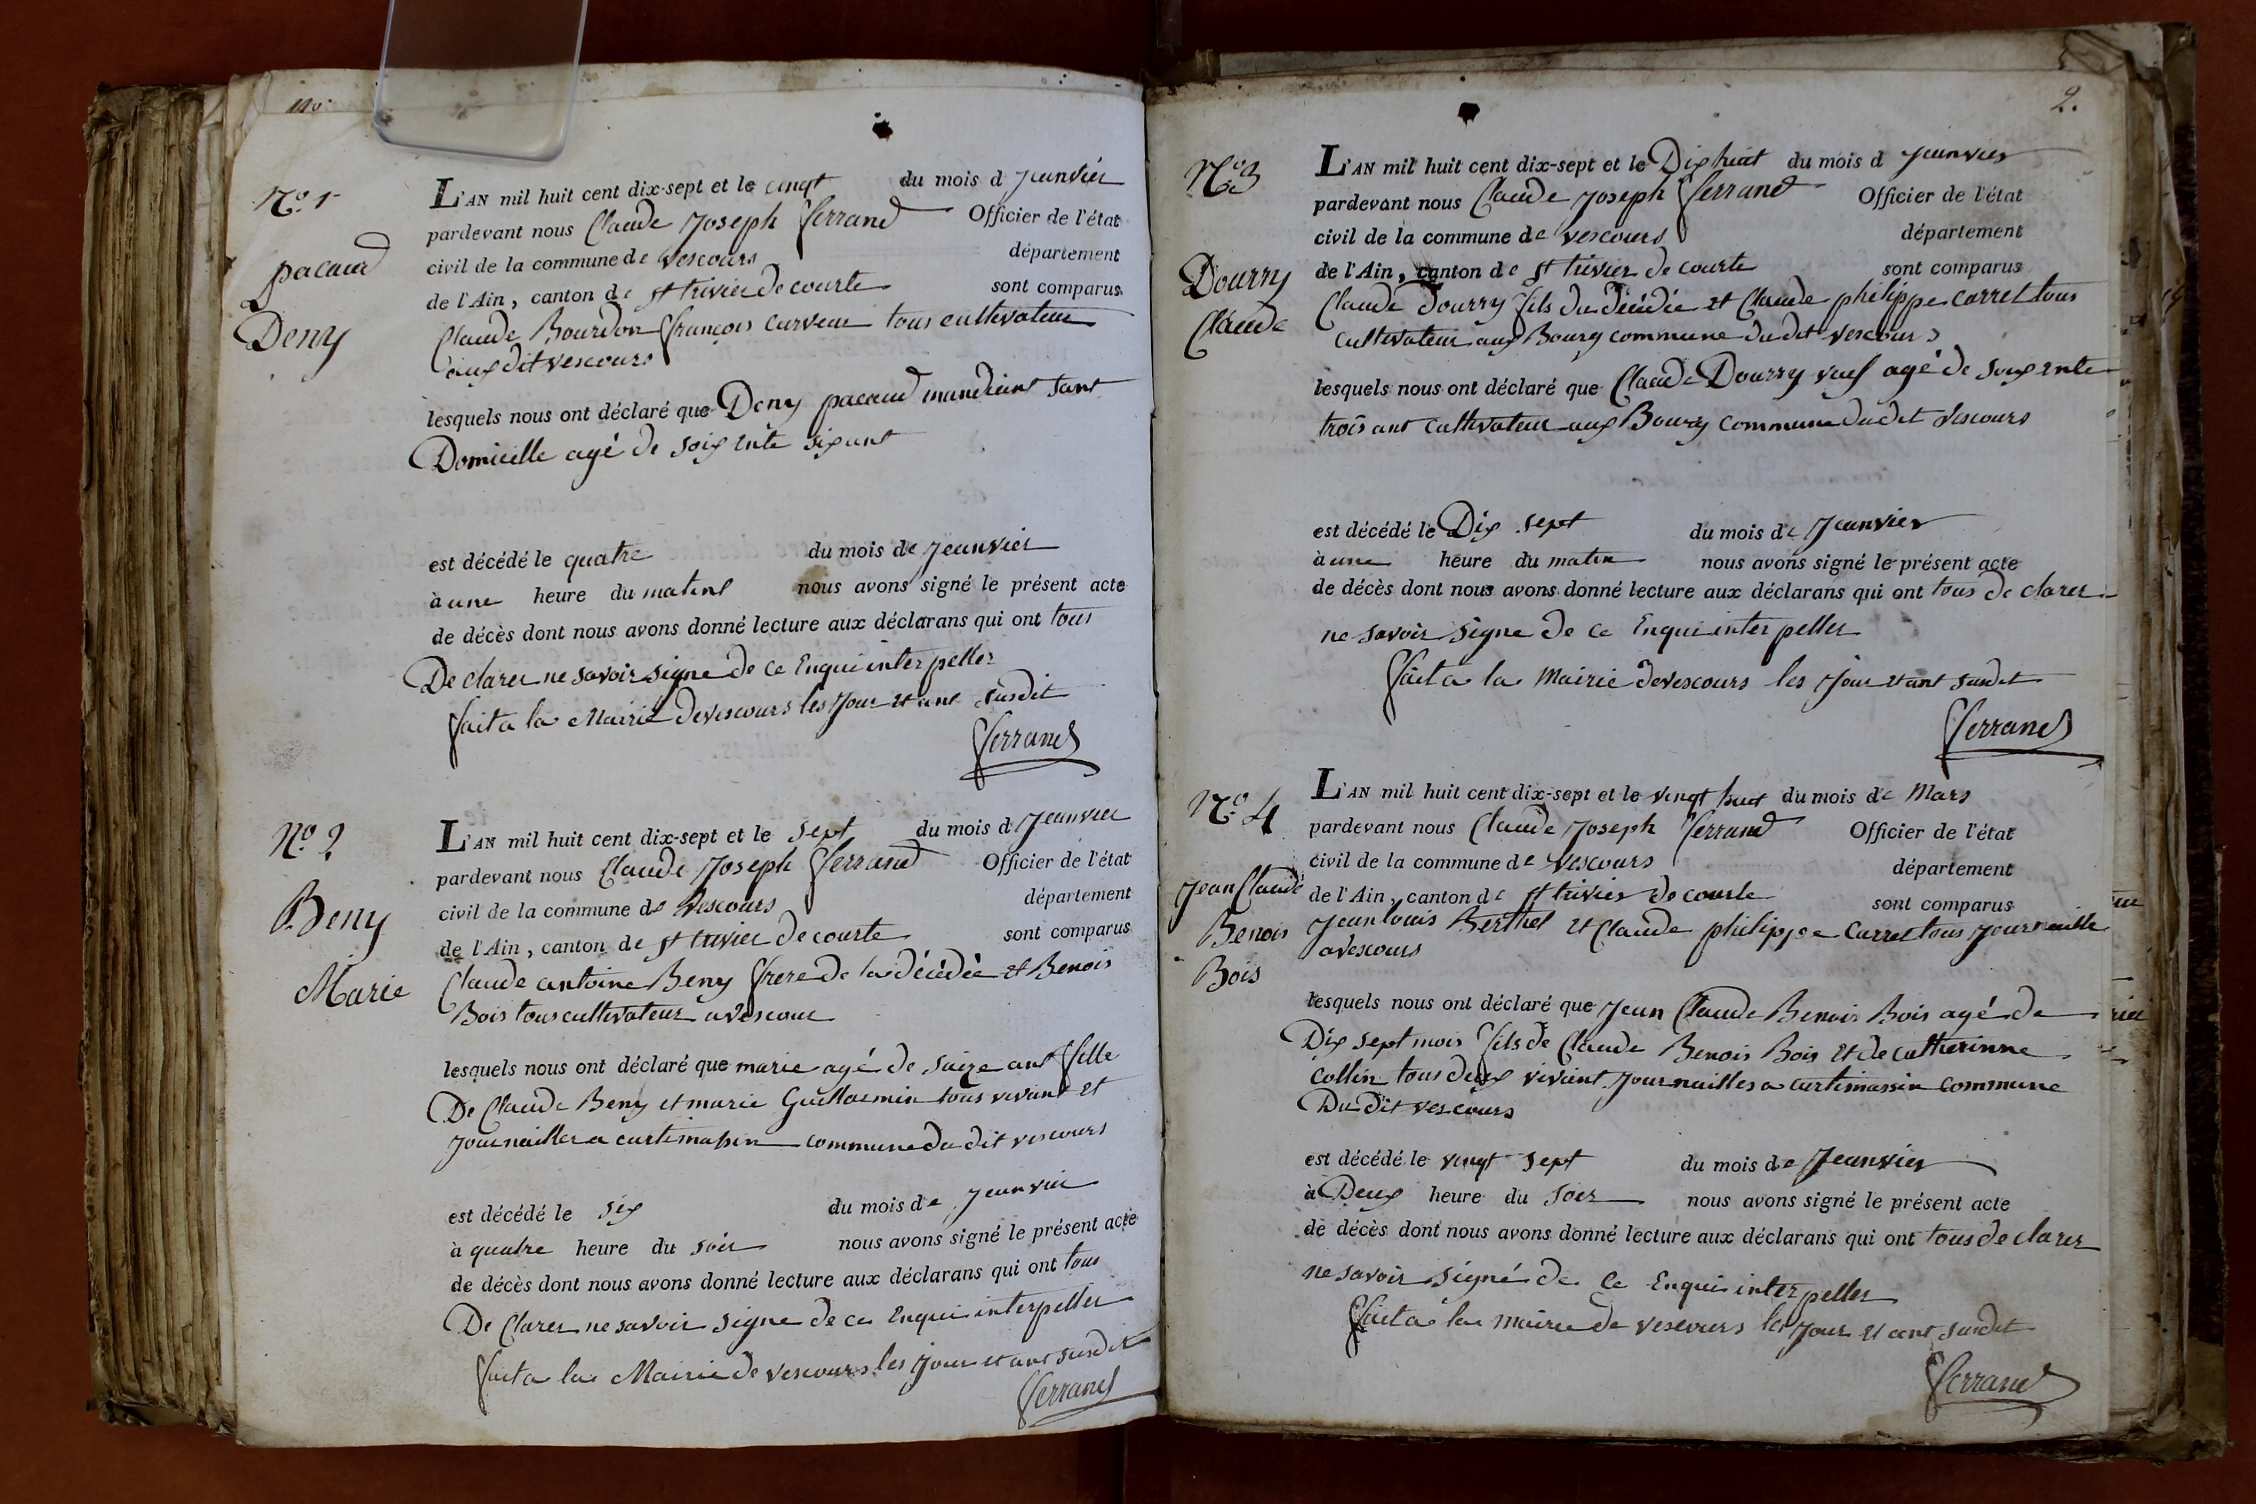 N.o 1
pacaud
Deny
L'AN mil huit cent dix-sept et le cinqt du mois d Jeanvier
pardevant nous Claude Joseph fferrand Officier de l'état
civil de la commune de vescours département
de l'Ain, canton de st trivier de courte sont comparus
Claude Bourdon ffrançois curveur tous cultivateur
aux dit vescours
lesquels nous ont déclaré que Deny pacaud mandiant sant
Domicille agé de soixente six ant
est décédé le quatre du mois de Jeanvier
à une heure du matint nous avons signé le présent acte
de décès dont nous avons donné lecture aux déclarans qui ont tous
De clarer ne savoir signe de ce Enqui interpeller
ffait a la Mairie de vescours les Jour et ant susdit
fferrand
N.o 2
Beny
Marie
L'AN mil huit cent dix-sept et le sept du mois d Jeanvier
pardevant nous Claude Joseph fferrand Officier de l'état
civil de la commune de vescours département
de l'Ain, canton de st trivier de courte sont comparus
Claude antoine Beny ffrere de la décédée et Benois
Bois tous cultivateur a vescour
lesquels nous ont déclaré que marie agé de saize ant ffille
De Claude Beny et marie Guillaemin tous vivant et
Journailler a curtimassin commune du dit vescours
est décédé le six du mois de Jeanvier
à quatre heure du soir nous avons signé le présent acte
de décès dont nous avons donné lecture aux déclarans qui ont tous
De Clarer ne savoir signe de ce Enqui interpeller
ffait a la Mairie de vescours les Jour et ant susdit
fferrand
2.
N.o 3
Dourry
Claude
L'AN mil huit cent dix-sept et le Dix huit du mois d Jeanvier
pardevant nous Claude Joseph fferrand Officier de l'état
civil de la commune de vescours département
de l'Ain, canton de st trivier de courte sont comparus
Claude Dourry ffils du décédée et Claude philippe carret tous
cultivateur aux Bourg commune du dit vescours
lesquels nous ont déclaré que Claude Dourry veuf agé de soixente
trois ant cultivateur aux Bourg commune du dit vescours
est décédé le Dix sept du mois de Jeanvier
à une heure du matin nous avons signé le présent acte
de décès dont nous avons donné lecture aux déclarans qui ont tous de clarer
ne savoir signe de ce Enqui interpeller
ffait a la Mairie de vescours les Jour et ant susdit
fferrand
N.o 4
Jean Claude
Benois
Bois
L'AN mil huit cent dix-sept et le vingt huit du mois de Mars
pardevant nous Claude Joseph fferrand Officier de l'état
civil de la commune de vescours département
de l'Ain, canton de st trivier de courte sont comparus
Jean louis Berthet et Claude philippe Carret tous Journaille
a vescours
lesquels nous ont déclaré que Jean Claude Benois Bois agé de
Dix sept mois ffils de Claude Benois Bois et de catherinne
collin tous deux vivant Journailles a curtimassin commune
Du dit vescours
est décédé le vingt sept du mois de Jeanvier
à Deux heure du soir nous avons signé le présent acte
de décès dont nous avons donné lecture aux déclarans qui ont tous de clarer
ne savoir signé de ce Enqui interpeller
ffait a la mairie de vescours les Jour et ant susdit
fferrand